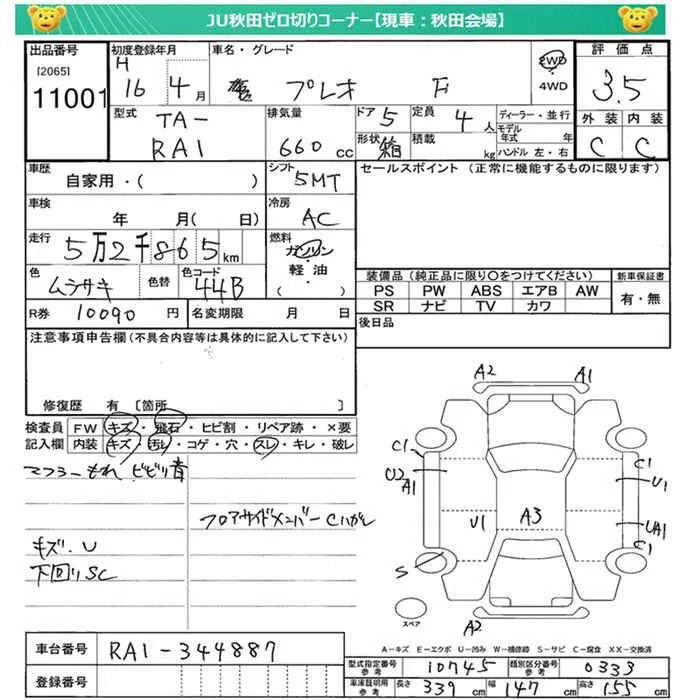 JU秋田ゼロ切りコーナー【現車：秋田会場】
出品番号 初度登録年月 車名・グレード 評価点
[2065] 11001
H 16 年 4月 プレオ F 2WD ・ 4WD 3.5
型式 TA-RA1
排気量 660 cc
ドア 5 定員 4人 ディーラー・並行
形状 箱 積載 kg モデル年式 年 ハンドル 左・右
外装 内装
C C
車歴 自家用・( )
シフト 5MT
セールスポイント (正常に機能するものに限ります)
車検 年 月( 日)
冷房 AC
走行 5万2千865km
燃料 ガソリン・軽油・( )
色 ムラサキ 色替 色コード 44B
装備品(純正品に限り○をつけてください) 新車保証書
PS PW ABS エアB AW 有・無
SR ナビ TV カワ
R券 10090 円 名変期限 月 日
後日品
注意事項申告欄(不具合内容等は具体的に記入して下さい)
修復歴 有 〔箇所 〕
検査員記入欄
FW キズ・飛石・ヒビ割・リペア跡・×要
内装 キズ・汚レ・コゲ・穴・スレ・キレ・破レ
マフラーもれ ビビリ音
フロアサイドメンバーCハガレ
キズ.U
下回りSC
A2 A1
C1 C1
U2 A1 U1
U1 A3 UA1
C1
S
スペア A2
A－キズ E－エクボ U－凹み W－補修跡 S－サビ C－腐食 XX－交換済
車台番号 RA1-344887
登録番号
型式指定番号参考 10745 類別区分番号参考 0333
車庫証明用参考 長さ 339cm 幅 147cm 高さ 155cm